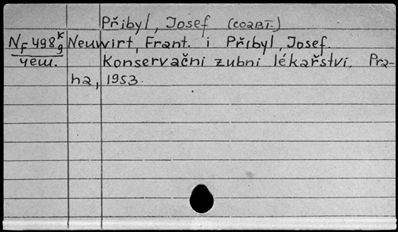 Přibyl, Josef (соавт.)
Nf 498 к/9 Neuwirt, Frant. i Přibyl, Josef.
чеш. Konservačni zubni lékařstvi. Pra-
ha, 1953.